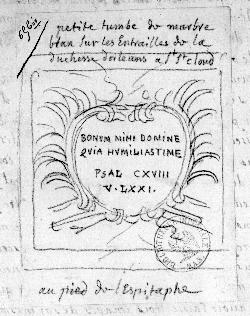 6969
petite tumbe de marbre
blan sur les Entrailles de la
duchesse dorleans a St Cloud
BONUM MIHI DOMINE
QVIA HVMILIASTI ME
PSAL CXVIII
V. LXXI.
au pied de l'Espitaphe